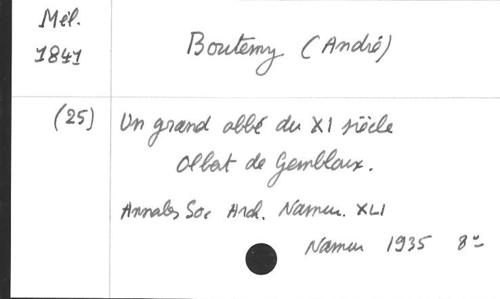 Mél.
1841
Boutemy (André)
(25) Un grand abbé du XI siècle
Olbert de Gembloux.
Annales Soc Arch. Namur. XLI
Namur 1935 8°